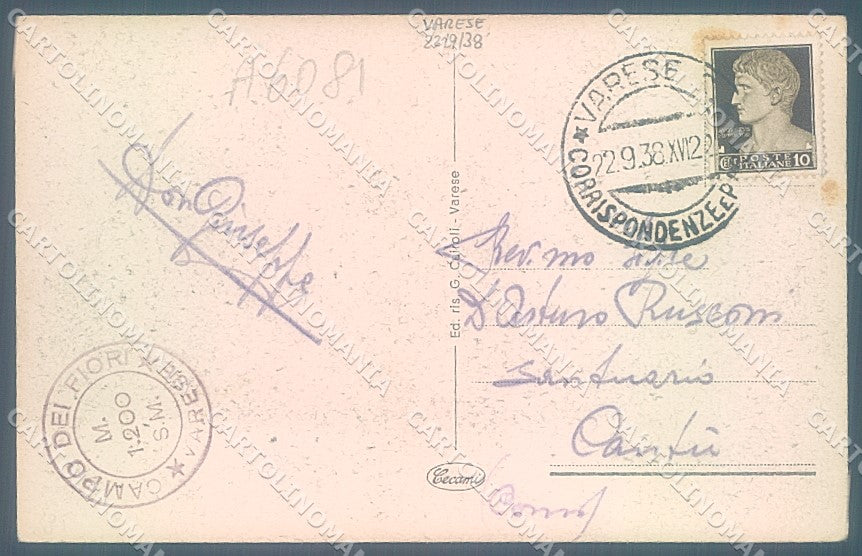 VARESE
22/9/38
A.6081
VARESE
22.9.38.XVI 2
CORRISPONDENZE E P
POSTE
ITALIANE 10
Don Giuseppe
Ed. ris. G. Cairoli - Varese
Rev.mo
D'Arturo Rusconi
Santuario
Cantù
(Como)
CAMPO DEI FIORI ★ VARESE ★
M.
1.200
S.M.
Cecami
CARTOLINOMANIA